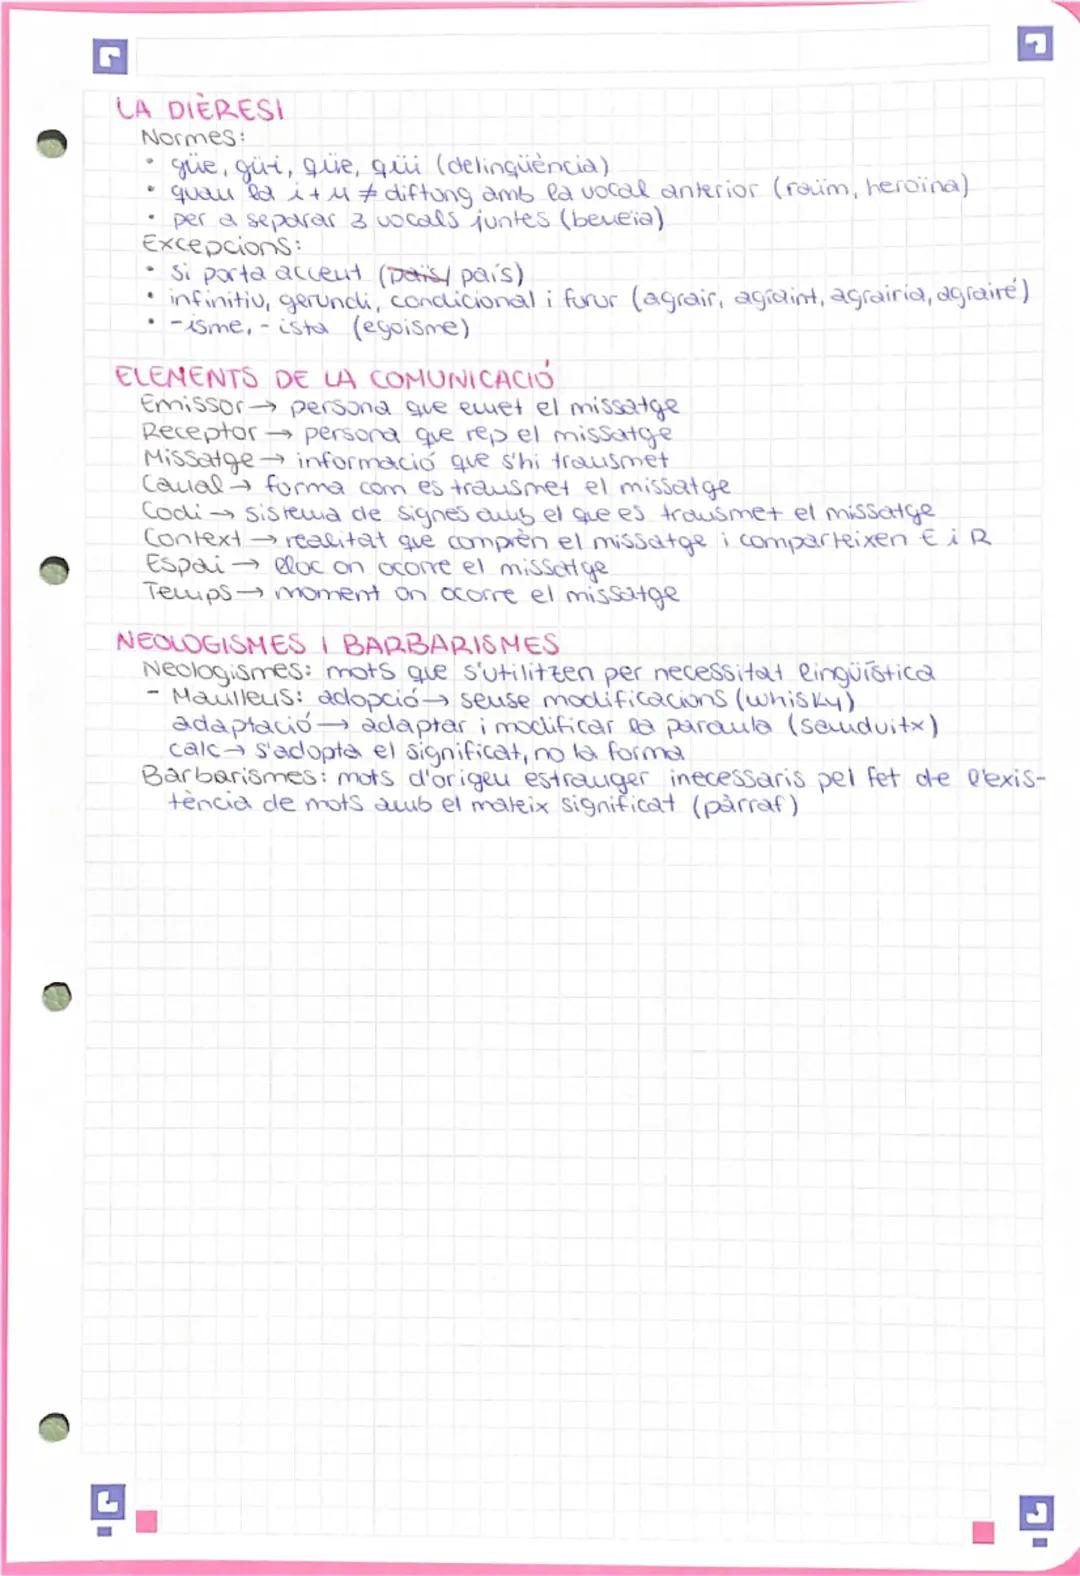 LA DIÈRESI
Normes:
• güe, güi, qüe, qüi (delinqüència)
• quan la i + u ≠ diftong amb la vocal anterior (raïm, heroïna)
• per a separar 3 vocals juntes (beueïa)
Excepcions:
• si porta accent (païs/ país)
• infinitiu, gerundi, condicional i futur (agrair, agraint, agrairia, agrairé)
• -isme, -ista (egoisme)
ELEMENTS DE LA COMUNICACIÓ
Emissor → persona que emet el missatge
Receptor → persona que rep el missatge
Missatge → informació que s'hi transmet
Canal → forma com es transmet el missatge
Codi → sistema de signes amb el que es transmet el missatge
Context → realitat que comprèn el missatge i comparteixen E i R
Espai → lloc on ocorre el missatge
Temps → moment on ocorre el missatge
NEOLOGISMES I BARBARISMES
Neologismes: mots que s'utilitzen per necessitat lingüística
- Manlleus: adopció → sense modificacions (whisky)
adaptació → adaptar i modificar la paraula (sanduitx)
calc → s'adopta el significat, no la forma
Barbarismes: mots d'origen estranger inecessaris pel fet de l'exis-
tència de mots amb el mateix significat (pàrraf)